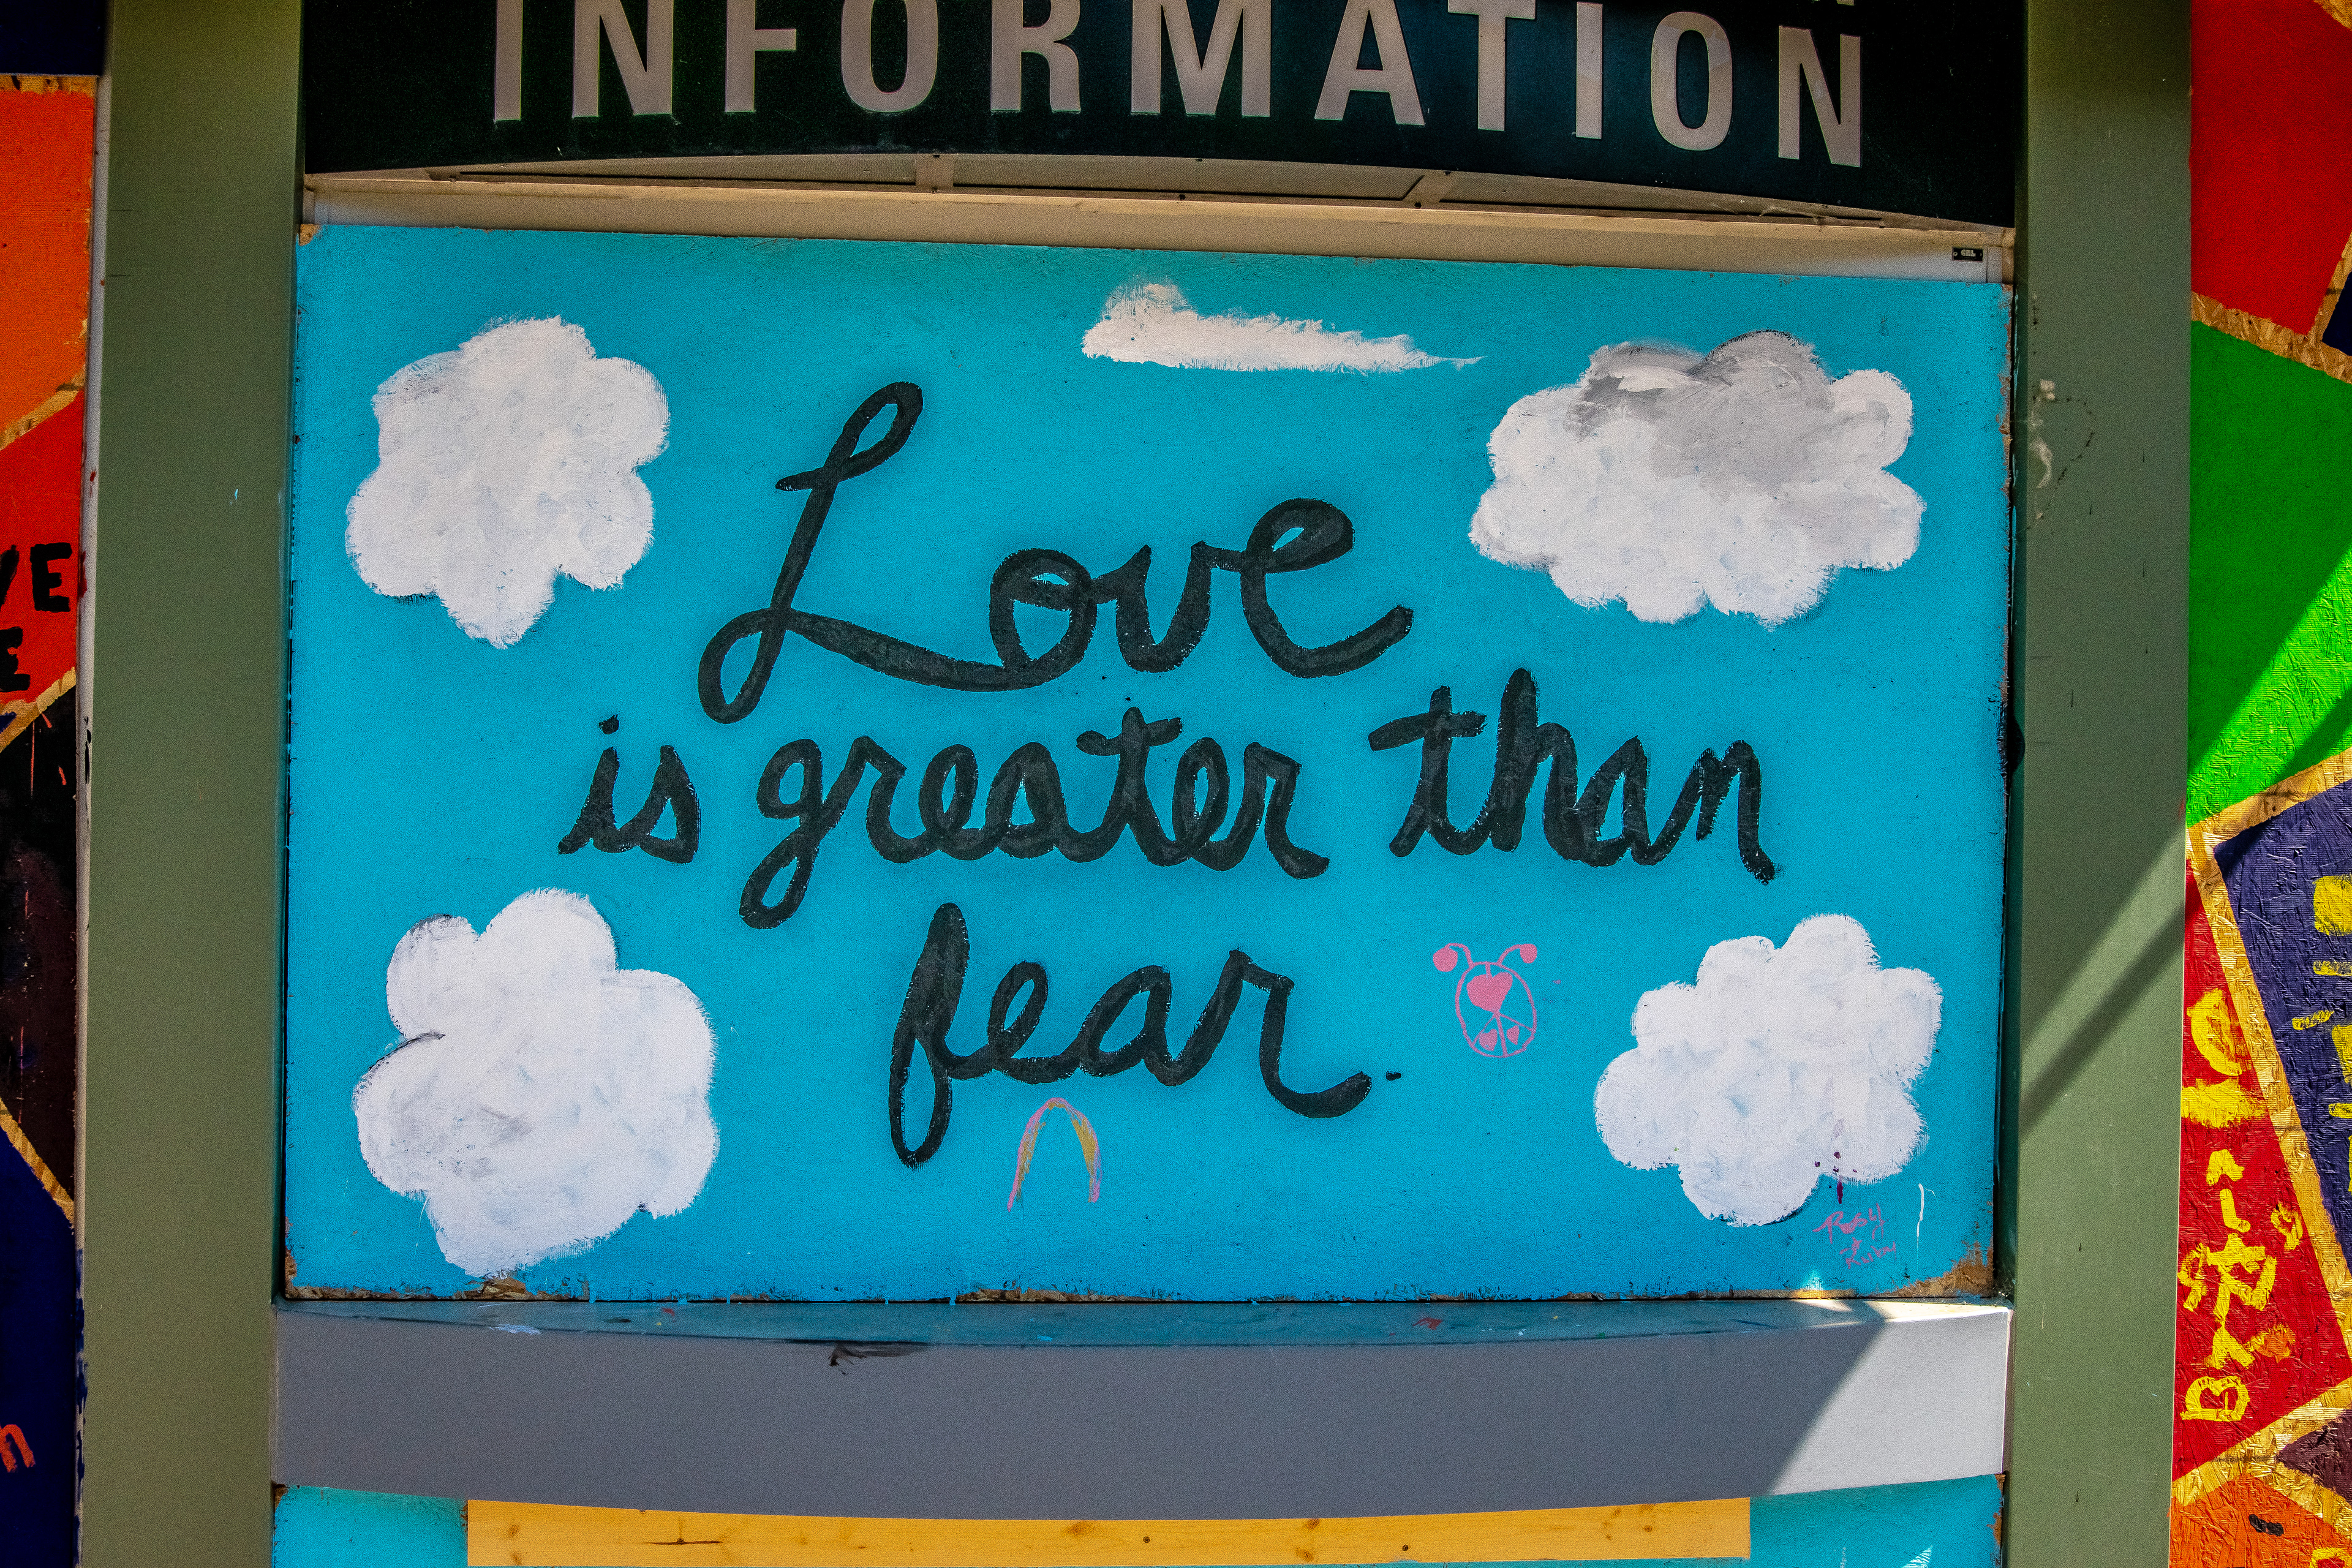 INFORMATION
Love
is greater than
fear.